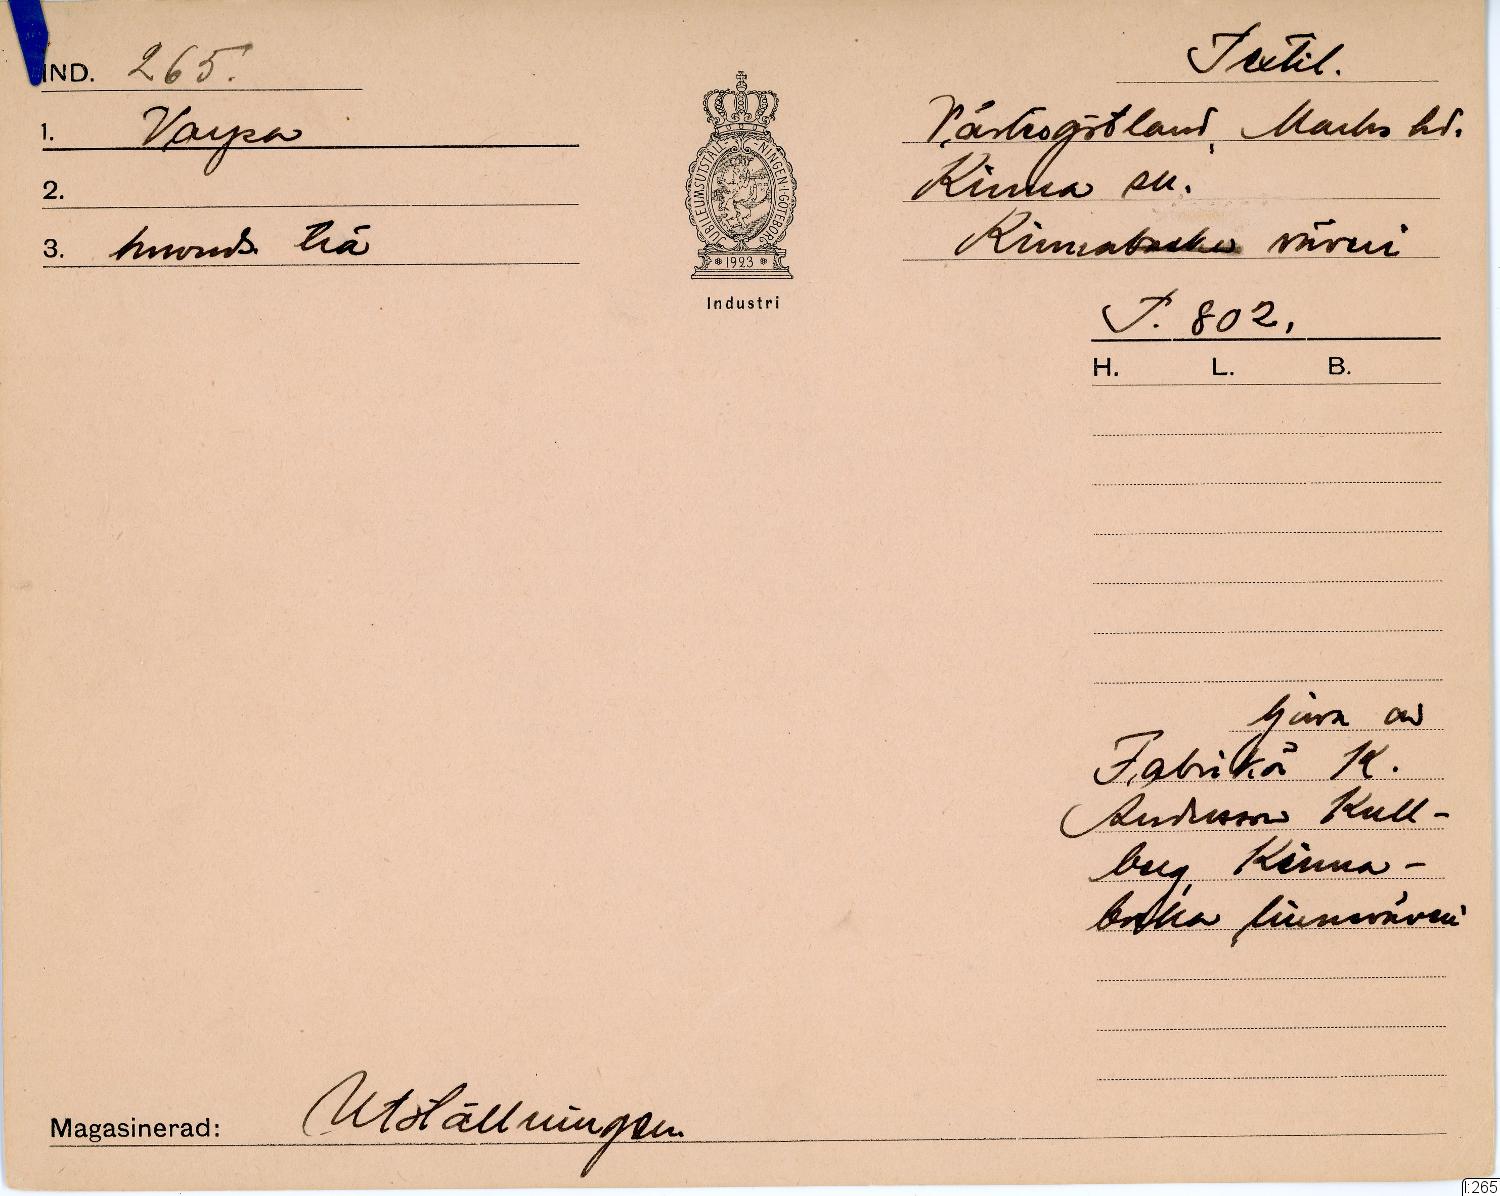 IND. 265.
1. Varpa
2.
3. trä
JUBILEUMSUTSTÄLLNINGEN I GÖTEBORG
* 1923 *
Industri
Textil.
Västergötland, Marks hd.
Kinna sn.
Kinna väveri
T. 802.
H. L. B.
Gåva av
Fabrikö K.
Andersson Kull-
berg Kinna-
linneväveri
Magasinerad: Utställningen
I:265